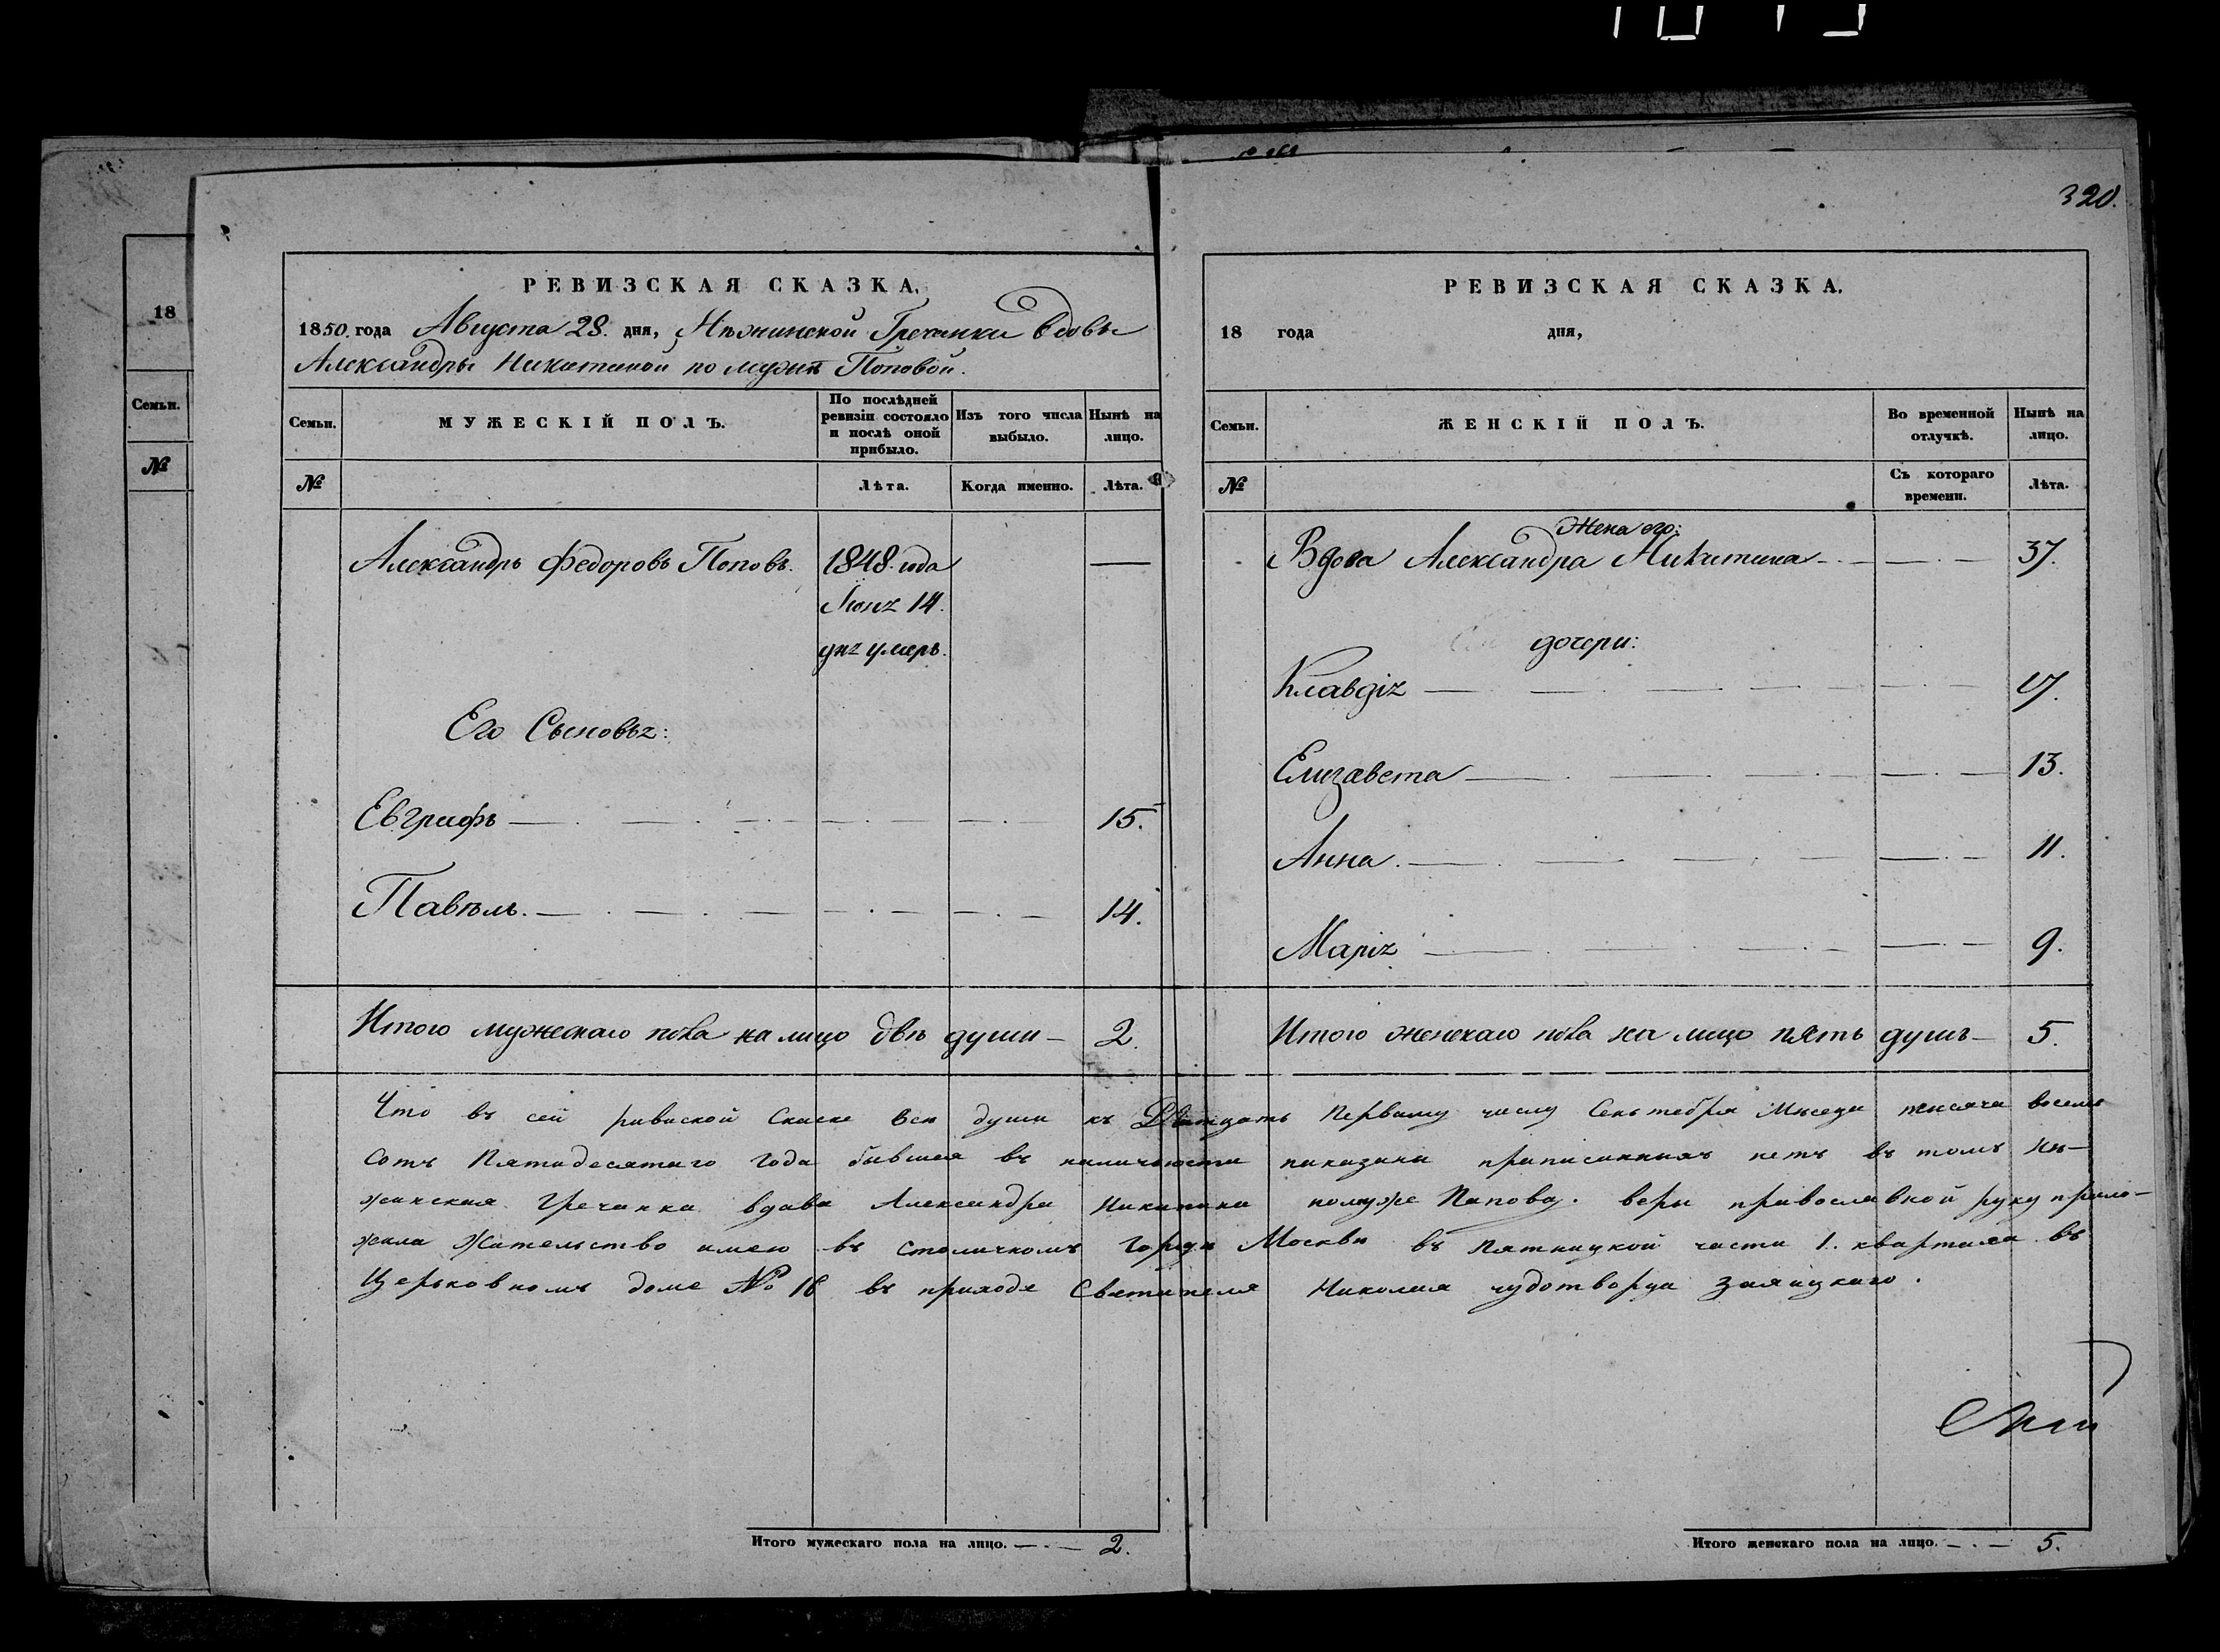 320.
18
Семьи.
№
РЕВИЗСКАЯ СКАЗКА.
1850. года Августа 28. дня, Нѣжинской Гречанки вдовы
Александры Никитиной по мужѣ Поповой.
Семьи.
МУЖЕСКІЙ ПОЛЪ.
По послѣдней ревизіи состояло и послѣ оной прибыло.
Изъ того числа выбыло.
Нынѣ на лицо.
№
Лѣта.
Когда именно.
Лѣта.
Александръ Федоровъ Поповъ. 1848. года —
Іюня 14.
дня умеръ.
Его Сыновья:
Евграфъ 15.
Павѣлъ. 14.
Итого мужескаго пола на лицо двѣ души 2.
РЕВИЗСКАЯ СКАЗКА.
18 года дня,
Семьи.
ЖЕНСКІЙ ПОЛЪ.
Во временной отлучкѣ.
Нынѣ на лицо.
№
Съ котораго времени.
Лѣта.
Жена его:
Вдова Александра Никитина 37.
дочери:
Клавдія 17.
Елизавета 13.
Анна. 11.
Марія 9.
Итого женскаго пола на лицо пять душъ 5.
Что въ сей ривиской Скаске всѣ души къ Дватцать Первому числу Сентебря Мѣсеца тысяча восемь
сотъ Пятидесятаго года бывшея въ наличности паказаны приписинныхъ нетъ въ томъ Нѣ-
жинская Гречанка вдава Александра Никитина помуже Папова. веры православной руку прило-
жила Жительство имею въ столичномъ Городѣ Москвы въ Пятницкой части 1. квартала въ
Церьковномъ доме № 16 въ приходе Святителя Николая чудотворца Заяицкаго.
Итого мужескаго пола на лицо. 2.
Итого женскаго пола на лицо. 5.